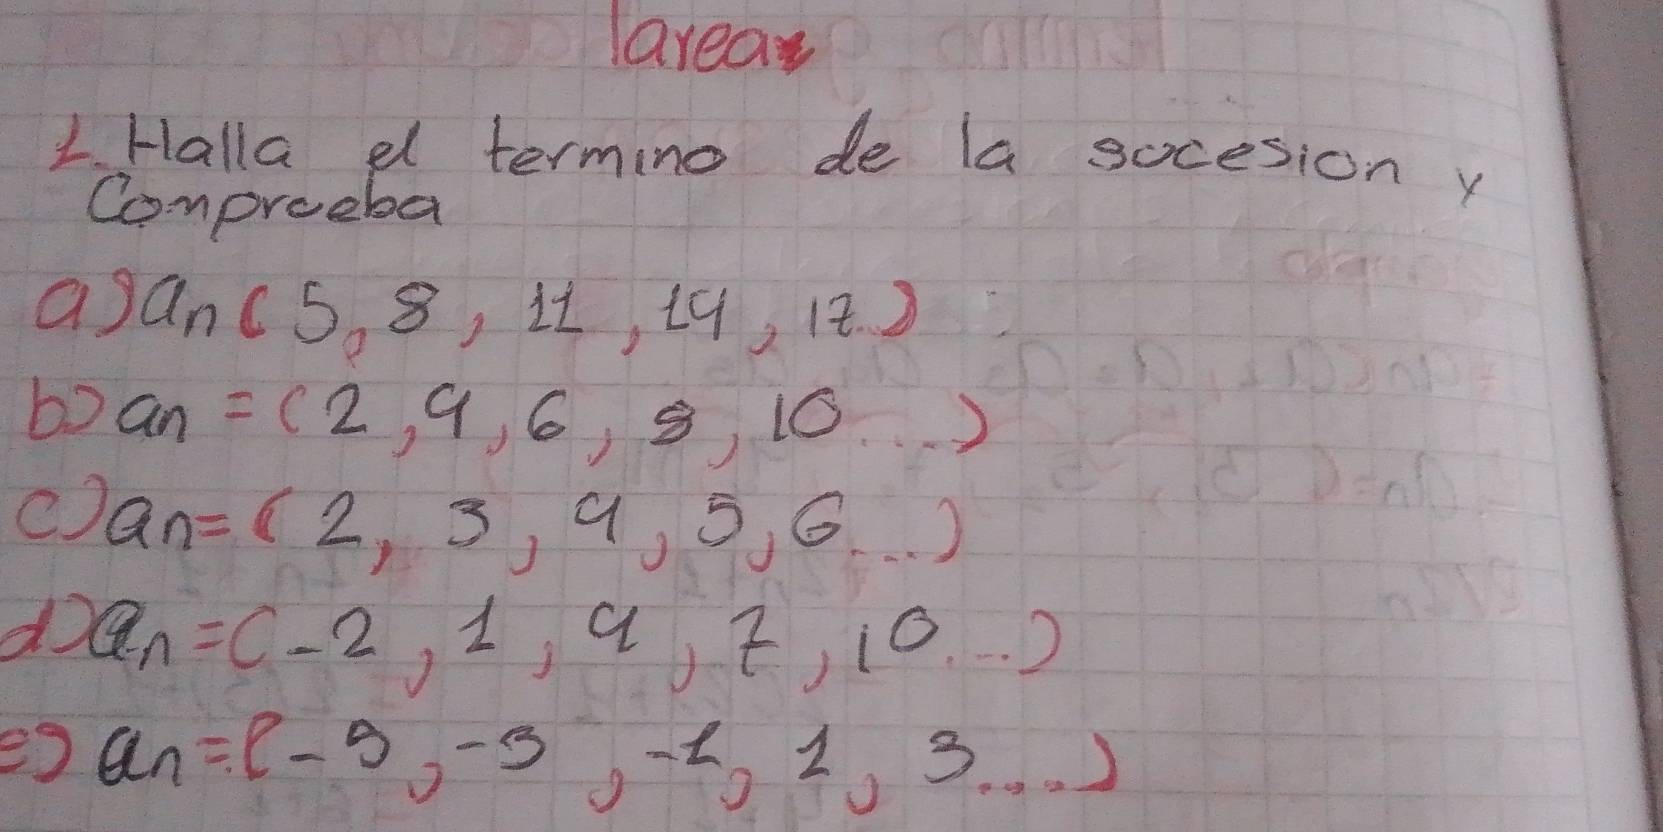 Tarea
1. Halla el termino de la sucesion y
Comprueba
a) an ( 5, 8, 11, 14, 17...)
b) an = (2, 4, 6, 8, 10....)
c) an = ( 2, 3, 4, 5, 6....)
d) an = (-2, 1, 4, 7, 10....)
e) an = (-5, -3, -1, 1, 3....)